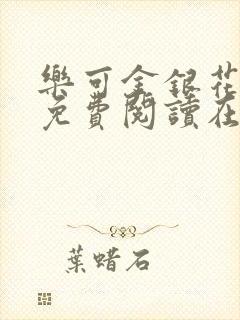 樂可金銀花
免費閱讀在
葉蜡石